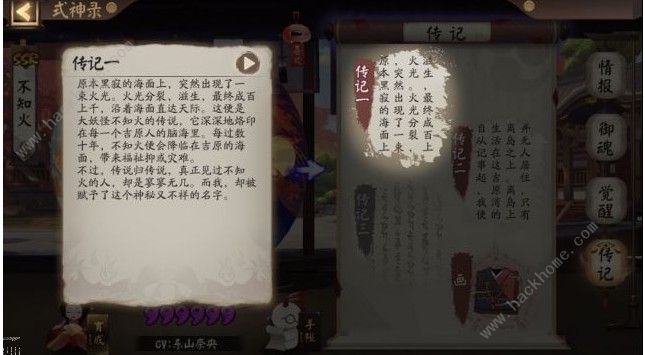 式神录
SSR
不知火
传记一
原本黑寂的海面上，突然出现了一
束火光。火光分裂，滋生，最终成百
上千，沿着海面直达天际。这便是
大妖怪不知火的传说，它深深地烙印
在每一个吉原人的脑海里。每过数
十年，不知火便会降临在吉原的海
面，带来福祉抑或灾难。
不过，传说归传说，真正见过不知
火的人，却是寥寥无几。而我，却被
赋予了这个神秘又不祥的名字。
育成
999999
CV:东山奈央
手账
传记
传记一
原本黑寂的海面上
，突然出现了一束
火光。火光分裂，
滋生，最终成百上
传记二
自从记事起，我便
生活在这吉原湾的
离岛之上。离岛上
并无人居住，只有
传记三
画
情报
御魂
觉醒
传记
www.hackhome.com